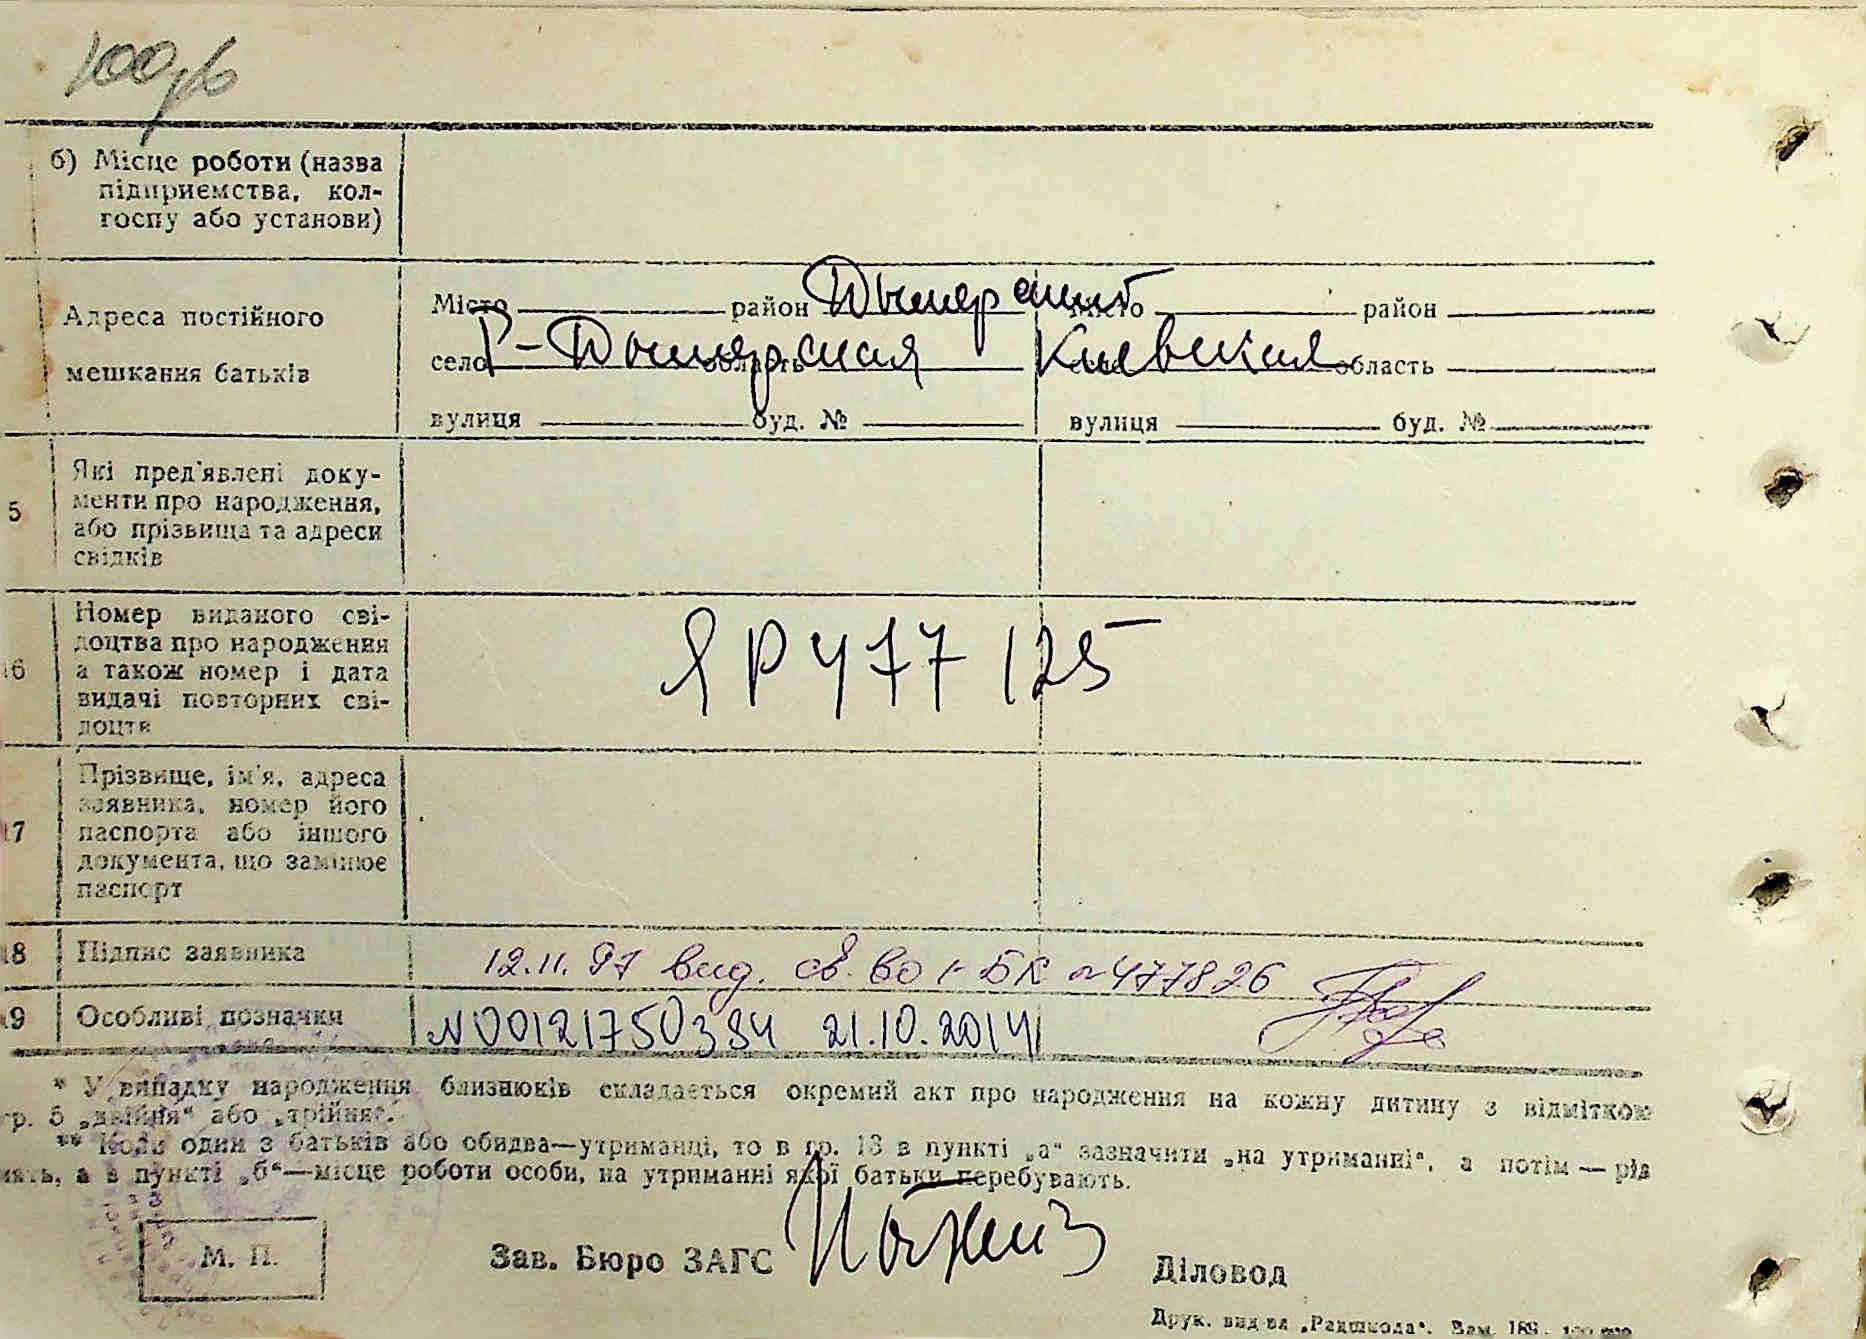 100рб
б) Місце роботи (назва
підприємства, кол-
госпу або установи)
Адреса постійного
мешкання батьків
Місто район Дымерский місто район
село Р-Дымерская область Киевская область
вулиця буд. № вулиця буд. №
5 Які пред'явлені доку-
менти про народження,
або прізвища та адреси
свідків
16 Номер виданого сві-
доцтва про народження
а також номер і дата
видачі повторних сві-
доцтв
ЯР 477125
17 Прізвище, ім'я, адреса
заявника, номер його
паспорта або іншого
документа, що замінює
паспорт
18 Підпис заявника
12.11.97 вид. св-во І-БК № 477826
19 Особливі позначки
N00121750394 21.10.2014
* У випадку народження близнюків складається окремий акт про народження на кожну дитину з відміткою
гр. 5 „двійня“ або „трійня“.
** Коли один з батьків або обидва—утриманці, то в гр. 13 в пункті „а“ зазначити „на утриманні“, а потім — рід
, а в пункті „б“—місце роботи особи, на утриманні якої батьки перебувають.
М. П.
Зав. Бюро ЗАГС
Діловод
Друк. вид-ва „Радшкола“. Зам. 189